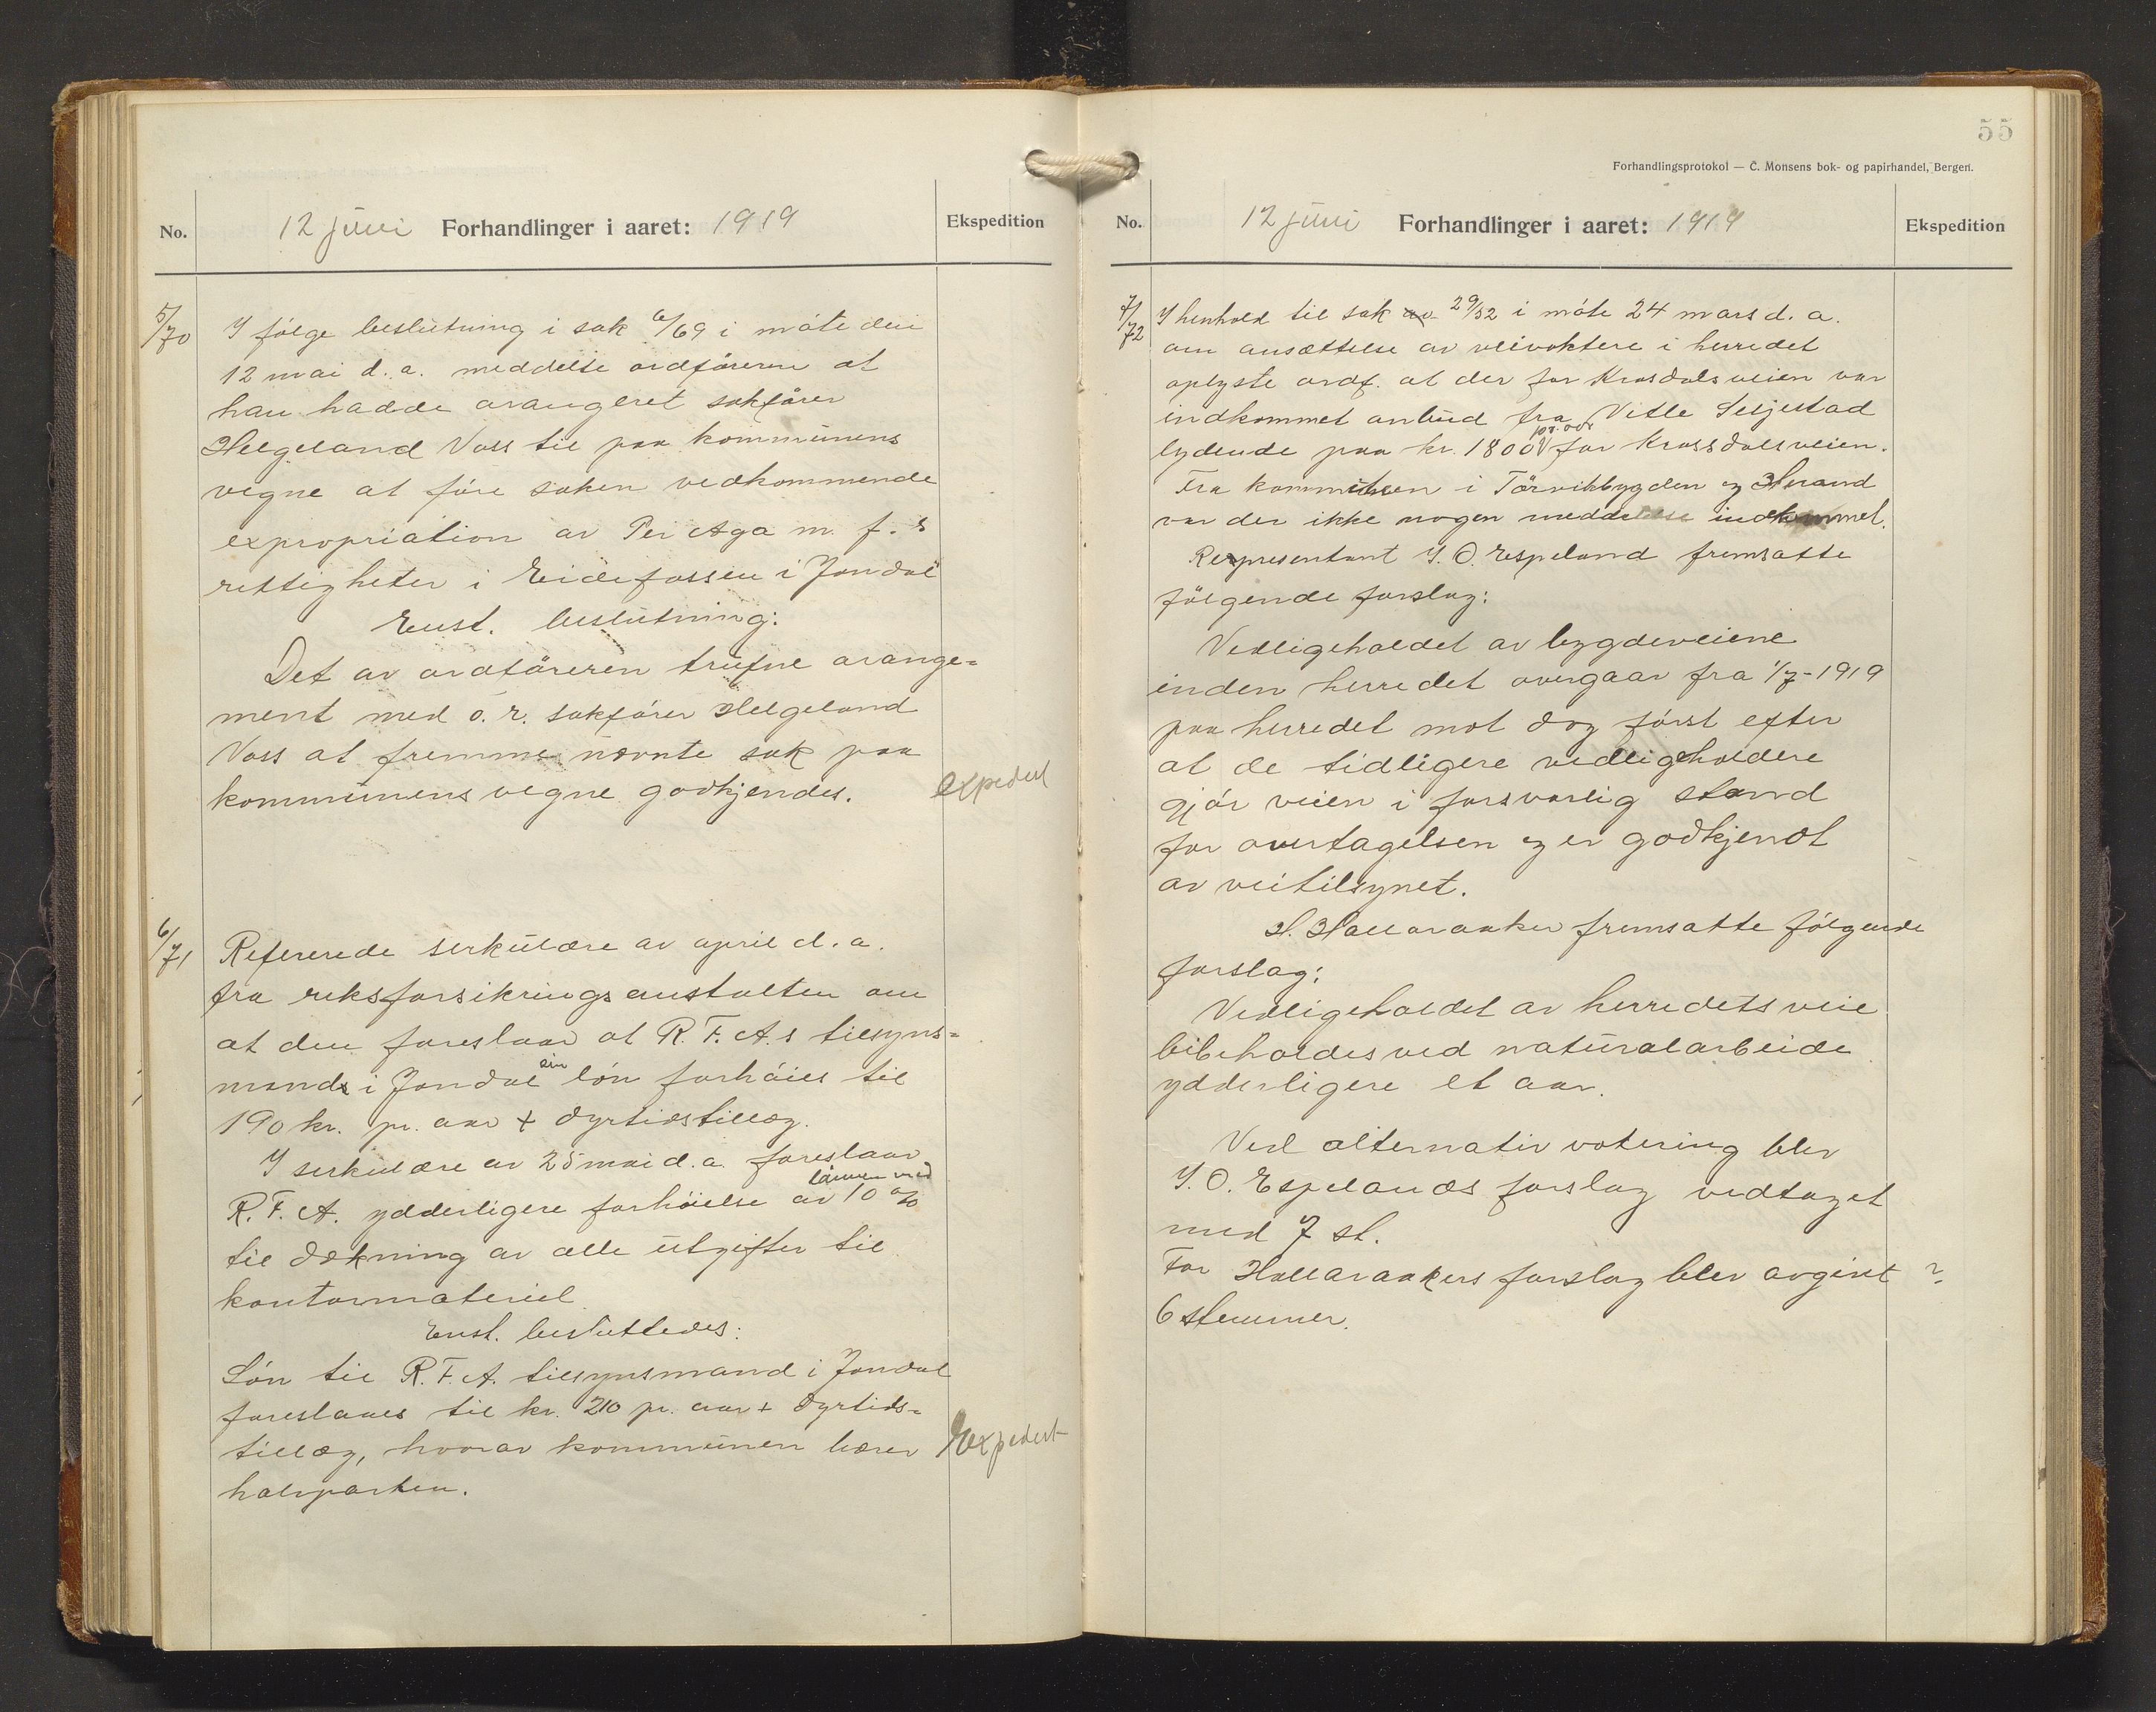 No.
12 juni Forhandlinger i aaret: 1919
Ekspedition
5/70
I følge beslutning i sak 6/69 i møte den
12 mai d. a. meddelte ordføreren at
han hadde arangeret sakfører
Helgeland Voss til paa kommunens
vegne at føre saken vedkommende
expropriation av Per Aga m. f. s
rettigheter i Eidefossen i Jondal
Enst. beslutning:
Det av ordføreren trufne arange=
ment med o. r. sakfører Helgeland
Voss at fremme nævnte sak paa
kommunens vegne godkjendes.
expedert
6/71
Refererede serkulære av april d. a.
fra riksforsikringsanstalten om
at den foreslaar at R. F. A.s tilsyns=
mand i Jondal sin løn forhøies til
190 kr. pr. aar + dyrtidstillæg.
I serkulære av 25 mai d. a. foreslaar
R. F. A. ydderligere forhøielse av lønnen med 10 %
til dækning av alle utgifter til
kontormateriel
Enst. besluttedes:
Løn til R. F. A. tilsynsmand i Jondal
foreslaaes til kr. 210 pr. aar + dyrtids=
tillæg, hvorav kommunen bærer
halvparten.
Expedert
55
Forhandlingsprotokol — C. Monsens bok- og papirhandel, Bergen.
No.
12 juni Forhandlinger i aaret: 1919
Ekspedition
7/72
I henhold til sak 29/52 i møte 24 mars d. a.
om ansættelse av veivoktere i herredet
oplyste ordf. at der for Krosdalsveien var
indkommet anbud fra Vitle Seljestad
lydende paa kr. 1800 pr. aar for Krossdalsveien.
Fra kommiteen i Tørvikbygden og Herand
var der ikke nogen meddelelse indkommet.
Representant I. O. Espeland fremsatte
følgende forslag:
Vedligeholdet av bygdeveiene
inden herredet overgaar fra 1/7-1919
paa herredet mot dog først efter
at de tidligere vedligeholdere
gjør veien i forsvarlig stand
for overtagelsen og er godkjendt
av veitilsynet.
H. Hallaraaker fremsatte følgende
forslag:
Vedligeholdet av herredets veie
bibeholdes ved naturalarbeide
ydderligere et aar.
Ved alternativ votering blev
I. O. Espelands forslag vedtaget
med 7 st.
For Hallaraakers forslag blev avgivt
6 stemmer.